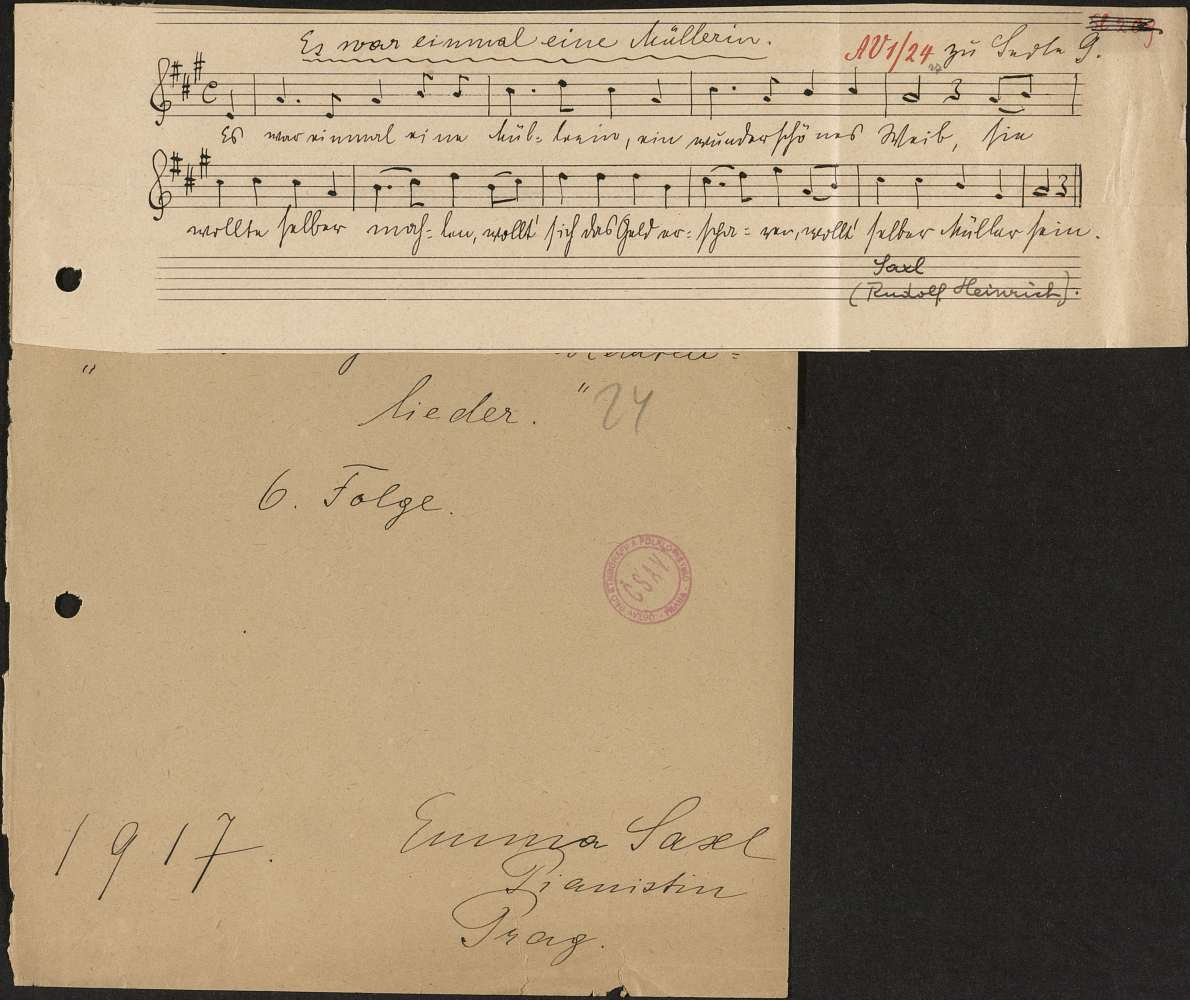 Es war einmal eine Müllerin.
AV 1/24 zu Seite 9.
Es war einmal eine Mül- lerin, ein wunderschönes Weib, sie
wollte selber mah- len, wollt' sich das Geld er- spa- ren, wollt' selber Müller sein.
Saxl
(Rudolf Heinrich).
lieder. " 24
6. Folge.
ČSAV
1917.
Emma Saxl
Pianistin
Prag.